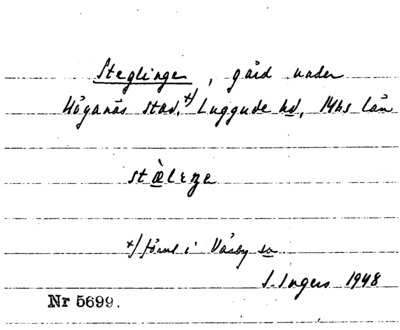 Steglinge, gård under
Höganäs stad, x) Luggude hd, Mhs län
stæ̀lıŋe
x) förut i Väsby sn
I. Ingers 1948
Nr 5699.